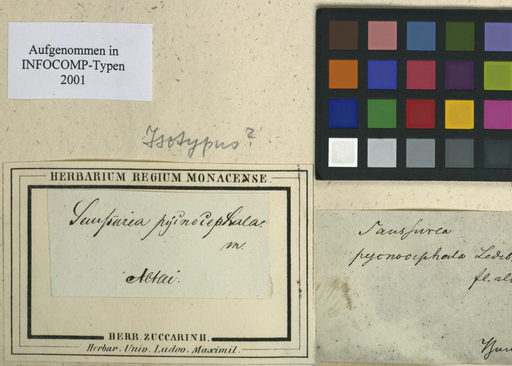 Aufgenommen in
INFOCOMP-Typen
2001
Isotypus?
HERBARIUM REGIUM MONACENSE.
Saussuria pycnocephala.
m.
Altai.
HERB. ZUCCARINII.
Herbar. Univ. Ludov. Maximil.
Saussurea
pycnocephala Ledeb
fl. alt